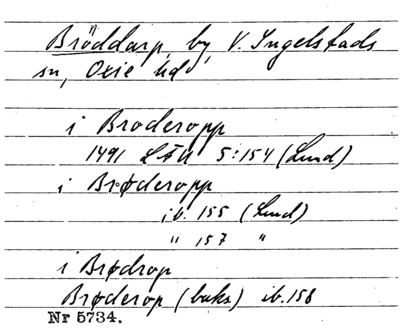 Bröddarp, by, V. Ingelstads
sn, Oxie hd
i Broderopp
1491 LÄU 5:154 (Lund)
i Brøderopp
ib. 155 (Lund)
" 157 "
i Brødrop
Brøderop (baks) ib. 158
Nr 5734.